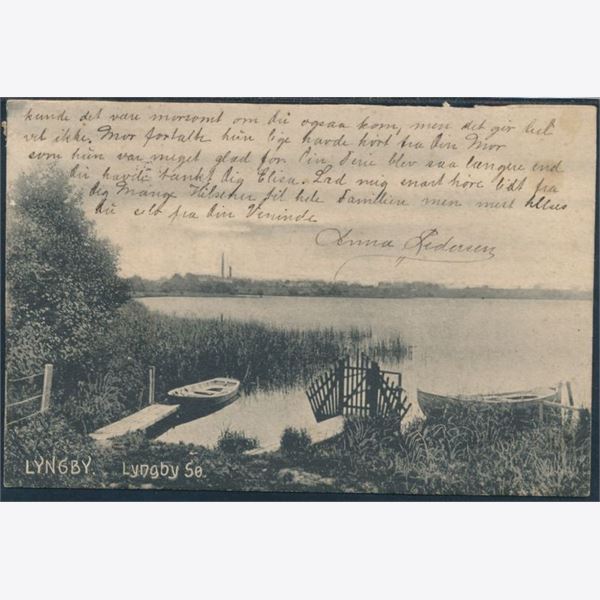 kunde det være morsomt om du ogsaa kom, men det gør du
vel ikke. Mor fortalte hun lige havde hørt fra din Mor
som hun var meget glad for. Din Ferie blev saa længere end
du havde tænkt dig Elisa. Lad mig snart høre lidt fra
dig Mange Hilsener til hele Familien men mest hilses
du selv fra din Veninde
Anna Pedersen
LYNGBY. Lyngby Sø.